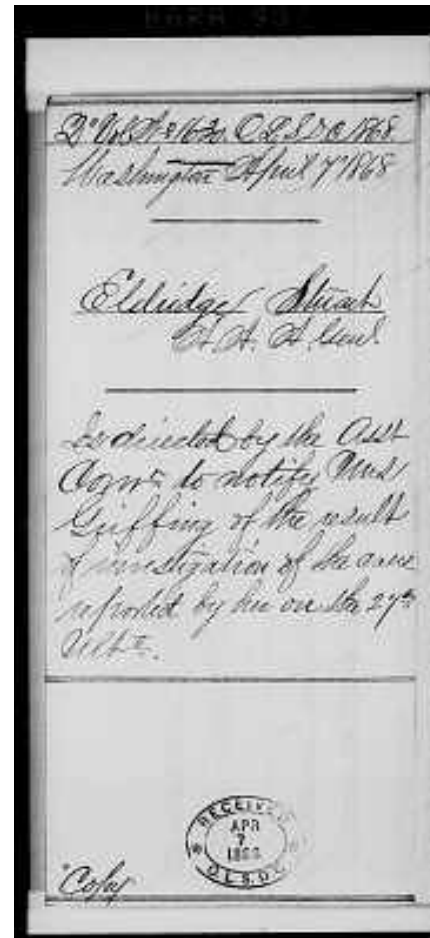 Washington April 7" 1868
Eldridge Stuart
A. A. A. Genl.
Is directed by the Asst
Comr. to notify Mrs.
Griffing of the result
of investigation of the case
reported by her on the 27th
Ulto.
RECEIVED
APR
7
1868
Copy